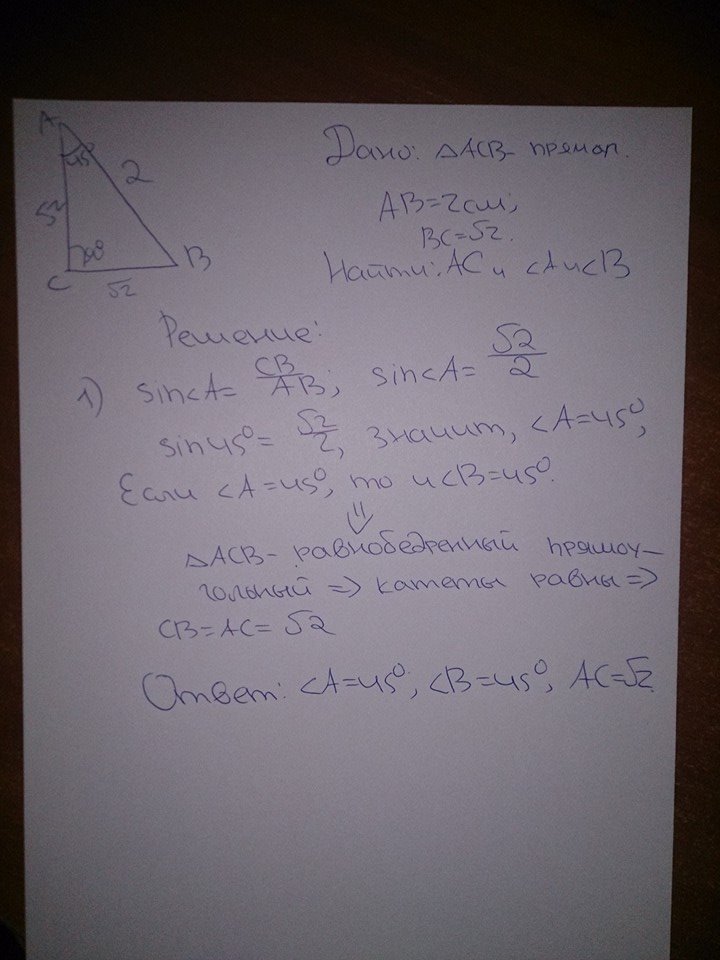 A
45°
2
√2
90°
B
C
√2
Дано: △ACB- прямоуг.
AB=2см;
BC=√2.
Найти: AC и <A и <B
Решение:
1) sin<A= CB/AB; sin<A= √2/2
sin45°= √2/2, значит, <A=45°,
Если <A=45°, то и <B=45°.
⇓
△ACB- равнобедренный прямоу-
гольный => катеты равны =>
CB=AC= √2
Ответ: <A=45°, <B=45°, AC=√2